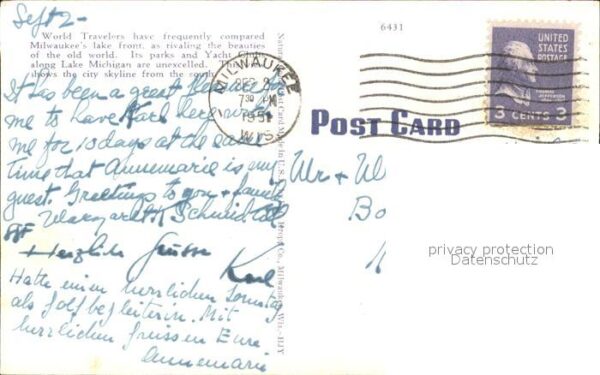 Sept 2-
World Travelers have frequently compared
Milwaukee's lake front, as rivaling the beauties
of the old world. Its parks and Yacht
along Lake Michigan are unexcelled.
shows the city skyline from the south
6431
MILWAUKEE
7 30 PM
1951
WIS.
UNITED
STATES
POSTAGE
3 CENTS 3
POST CARD
It has been a great pleasure for
me to have Karl here with
me for 10 days at the same
time that Annemarie is my
guest. Greetings to you + family
Margaret Schmidt
Herzliche Grüsse Karl
Hatte einen herrlichen Sonntag
als Golfbegleiterin. Mit
herzlichen Grüssen Eure
Annemarie
Mr + W
Bo
privacy protection
Datenschutz